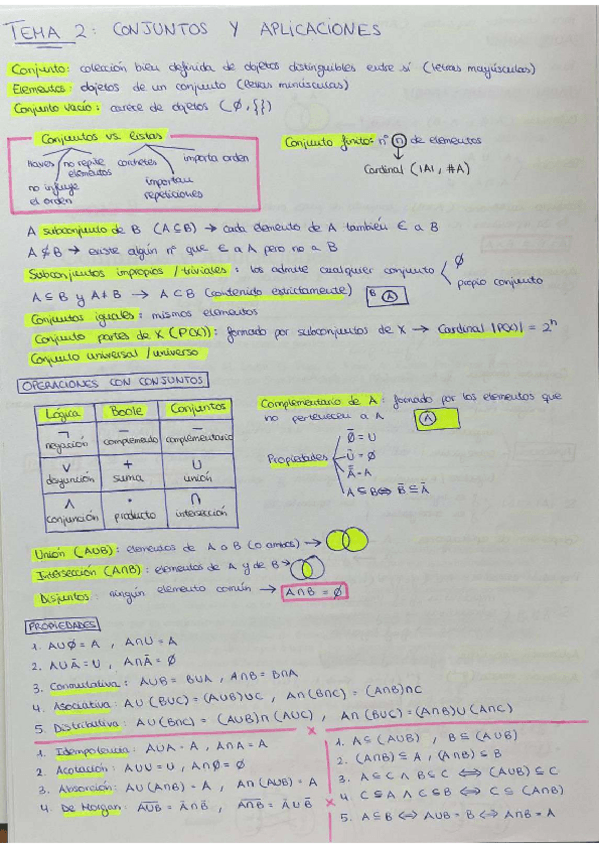 TEMA 2: CONJUNTOS Y APLICACIONES
Conjunto: colección bien definida de objetos distinguibles entre sí (letras mayúsculas)
Elementos: objetos de un conjunto (letras minúsculas)
Conjunto vacío: carece de objetos (∅, {})
Conjuntos vs. listas
llaves no repite elementos corchetes importa orden
no influye el orden
importan repeticiones
Conjunto finito: nº n de elementos
Cardinal (|A|, #A)
A subconjunto de B (A⊆B) → cada elemento de A también ∈ a B
A ⊈ B → existe algún nº que ∈ a A pero no a B
Subconjuntos impropios / triviales: los admite cualquier conjunto
∅
propio conjunto
A ⊆ B y A ≠ B → A ⊂ B (contenido estrictamente) B A
Conjuntos iguales: mismos elementos
Conjunto partes de X (P(X)): formado por subconjuntos de X → Cardinal |P(X)| = 2ⁿ
Conjunto universal / universo
OPERACIONES CON CONJUNTOS
Lógica Boole Conjuntos
¬ negación
‾ complemento
‾ complementario
∨ disyunción
+ suma
∪ unión
∧ conjunción
• producto
∩ intersección
Complementario de A: formado por los elementos que
no pertenecen a A A
Propiedades
∅̅ = U
U̅ = ∅
A̿ = A
A ⊆ B ⟺ B̅ ⊆ A̅
Unión (A∪B): elementos de A o B (o ambos) →
Intersección (A∩B): elementos de A y de B →
Disjuntos: ningún elemento común → A∩B = ∅
PROPIEDADES
1. A∪∅ = A , A∩U = A
2. A∪A̅ = U , A∩A̅ = ∅
3. Conmutativa: A∪B = B∪A , A∩B = B∩A
4. Asociativa: A∪(B∪C) = (A∪B)∪C , A∩(B∩C) = (A∩B)∩C
5. Distributiva: A∪(B∩C) = (A∪B)∩(A∪C) , A∩(B∪C) = (A∩B)∪(A∩C)
1. Idempotencia: A∪A = A , A∩A = A
2. Acotación: A∪U = U , A∩∅ = ∅
3. Absorción: A∪(A∩B) = A , A∩(A∪B) = A
4. De Morgan: A̅∪̅B̅ = A̅ ∩ B̅ , A̅∩̅B̅ = A̅ ∪ B̅
1. A ⊆ (A∪B) , B ⊆ (A∪B)
2. (A∩B) ⊆ A , (A∩B) ⊆ B
3. A ⊆ C ∧ B ⊆ C ⟺ (A∪B) ⊆ C
4. C ⊆ A ∧ C ⊆ B ⟺ C ⊆ (A∩B)
5. A ⊆ B ⟺ A∪B = B ⟺ A∩B = A